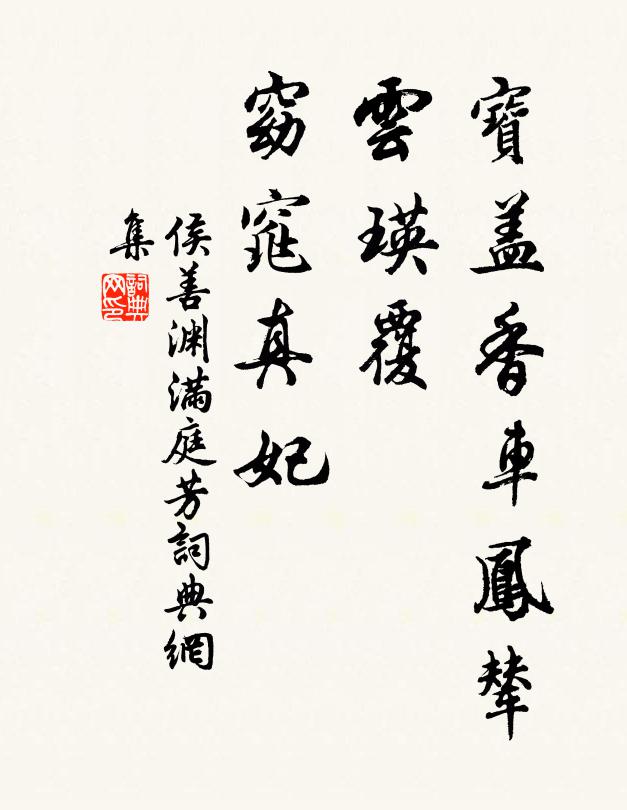 寶盖香車鳳輦
雲瑛覆
窈窕真妃
侯善渊滿庭芳詞典網
集
詞典网印